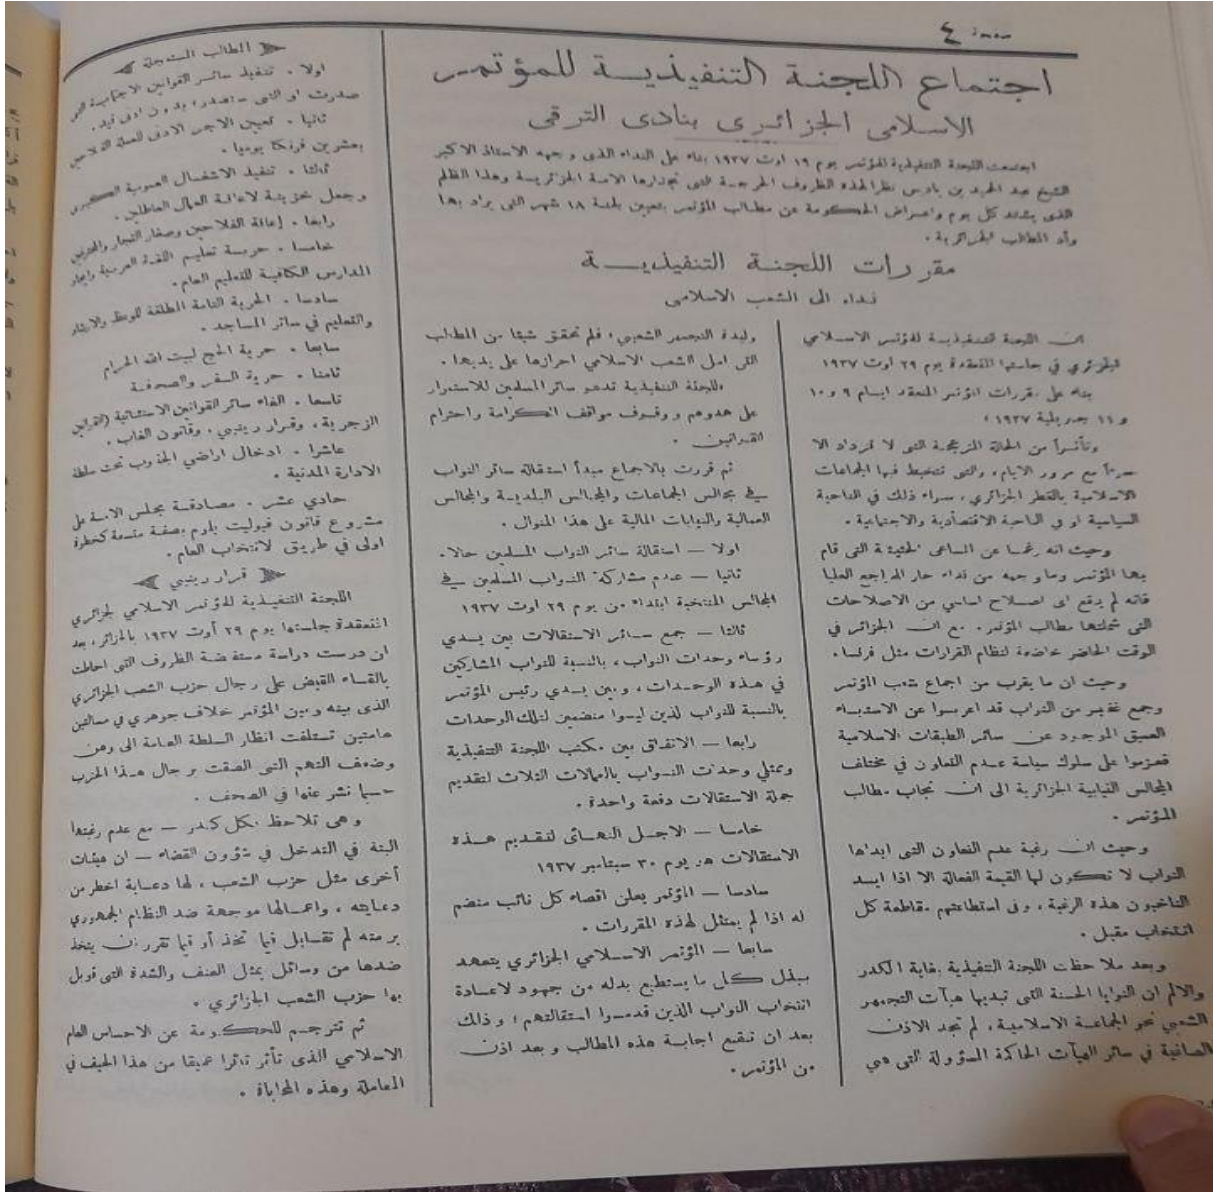 صفحة ٤
اجتماع اللجنة التنفيذية للمؤتمر
الاسلامى الجزائرى بنادى الترقى
اجتمعت اللجنة التنفيذية للمؤتمر يوم ١٩ اوت ١٩٣٧ بناء على النداء الذى وجهه الاستاذ الاكبر
الشيخ عبد الحميد بن باديس نظرا لهذه الظروف الحرجة التى تجتازها الامة الجزائرية وهذا الظلم
الذى يشتد كل يوم واعراض الحكومة عن مطالب المؤتمر بتعيين بلجنة ١٨ شهر التى يراد بها
وأد المطالب الجزائرية .
مقررات اللجنة التنفيذيـــة
نداء الى الشعب الاسلامى
ان اللجنة التنفيذيـة لمؤتمر الاسلامي
الجزائري في جلستها المنعقدة يوم ٢٩ اوت ١٩٣٧
بناء على مقررات المؤتمر المنعقد ايسام ٩ و ١٠
و ١١ جويلية ١٩٣٧ ؛
وتأثراً من الحالة المزعجة التى لا تزداد الا
مع مرور الايام ، والتى تتخبط فيها الجماعات
الاسلامية بالقطر الجزائري ، سواء ذلك في الناحية
السياسية او في الناحية الاقتصادية والاجتماعية .
وحيث انه رغما عن المساعى الحثيثة التى قام
بها المؤتمر وما وجهه من نداء حار للمراجع العليا
فانه لم يقع اى اصلاح اساسي من الاصلاحات
التى شملتها مطالب المؤتمر . مع ان الجزائر في
الوقت الحاضر خاضعة لنظام القرارات مثل فرنسا .
وحيث ان ما يقرب من اجماع شعب المؤتمر
وجمع غفير من النواب قد اعربوا عن الاستياء
العميق الموجود عن سائر الطبقات الاسلامية
فعزموا على سلوك سياسة عدم التعاون في مختلف
المجالس النيابية الجزائرية الى ان تجاب مطالب
المؤتمر .
وحيث ان رغبة عدم التعاون التى ابداها
النواب لا تكون لها القيمة الفعالة الا اذا ايد
الناخبون هذه الرغبة ، وفى استطاعتهم مقاطعة كل
انتخاب مقبل .
وبعد ملاحظت اللجنة التنفيذية بغاية الكدر
والالم ان النوايا الحسنة التى تبديها هيآت التجمهر
الشعبي نحو الجماعة الاسلامية ، لم تجد الاذن
الصاغية في سائر الهيآت الحاكمة المسؤولة التى هى
وليدة التجمهر الشعبي ، فلم تحقق شيئا من المطالب
التى امل الشعب الاسلامي احرازها على يديها .
فاللجنة التنفيذية تدعو سائر المسلمين للاستمرار
على هدوهم ووقوف مواقف الكرامة واحترام
القوانين .
ثم قررت بالاجماع مبدأ استقالة سائر النواب
في مجالس الجماعات والمجالس البلدية والمجالس
العمالية والنيابات المالية على هذا المنوال .
اولا — استقالة سائر النواب المسلمين حالا .
ثانيا — عدم مشاركة النواب المسلمين في
المجالس المنتخبة ابتداء من يوم ٢٩ اوت ١٩٣٧
ثالثا — جمع سائر الاستقالات بين يدي
رؤساء وحدات النواب ، بالنسبة للنواب المشاركين
في هذه الوحدات ، وبين يدي رئيس المؤتمر
بالنسبة للنواب الذين ليسوا منضمين لتلك الوحدات
رابعا — الاتفاق بين مكتب اللجنة التنفيذية
وممثلي وحدات النواب بالعمالات الثلاث لتقديم
جملة الاستقالات دفعة واحدة .
خامسا — الاجل النهائى لتقديم هذه
الاستقالات هو يوم ٣٠ سبتامبر ١٩٣٧
سادسا — المؤتمر يعلن اقصاء كل نائب منضم
له اذا لم يمتثل لهذه المقررات .
سابعا — المؤتمر الاسلامي الجزائري يتعهد
ببذل كل ما يستطيع بذله من جهود لاعادة
انتخاب النواب الذين قدموا استقالتهم ؛ وذلك
بعد ان تقع اجابة هذه المطالب وبعد اذن
من المؤتمر .
المطالب المستعجلة
اولا . تنفيذ سائر القوانين الاجتماعية التى
صدرت او التى ستصدر ، بدون ادنى قيد .
ثانيا . تعيين الاجر الادنى للعملة الفلاحين
بعشرين فرنكا يوميا .
ثالثا . تنفيذ الاشغال العمومية الكبرى
وجعل خزينة لاعانة العمال العاطلين .
رابعا . إعانة الفلاحين وصغار التجار والمحترفين
خامسا . حرية تعليم اللغة العربية وايجاد
المدارس الكافية للتعليم العام .
سادسا . الحرية التامة المطلقة للوعظ والارشاد
والتعليم في سائر المساجد .
سابعا . حرية الحج لبيت الله الحرام
ثامنا . حرية السفر والصحافة
تاسعا . الغاء سائر القوانين الاستثنائية (القوانين
الزجرية ، وقرار رينيي ، وقانون الغاب .
عاشرا . ادخال اراضي الجنوب تحت سلطة
الادارة المدنية .
حادي عشر . مصادقة مجلس الامة على
مشروع قانون فيوليت بلوم بصفة متسعة كخطوة
اولى في طريق الانتخاب العام .
قرار رينيي
اللجنة التنفيذية للمؤتمر الاسلامي الجزائري
المنعقدة جلستها يوم ٢٩ أوت ١٩٣٧ بالجزائر ، بعد
ان درست دراسة مستفيضة الظروف التى احاطت
بالقاء القبض على رجال حزب الشعب الجزائري
الذى بينه وبين المؤتمر خلاف جوهري في مسألتين
هامتين تستلفت انظار السلطة العامة الى وهن
وضعف التهم التى الصقت برجال هذا الحزب
حسبما نشر عنها في الصحف .
وهى تلاحظ بكل كدر — مع عدم رغبتها
البتة في التدخل في شؤون القضاء — ان هيئات
أخرى مثل حزب الشعب ، لها دعاية اخطر من
دعايته ، واعمالها موجهة ضد النظام الجمهوري
برمته لم تقابل فيما تخذ أو فيما تقرر ان يتخذ
ضدها من وسائل بمثل العنف والشدة التى قوبل
بها حزب الشعب الجزائري .
ثم تترجم للحكومة عن الاحساس العام
الاسلامي الذى تأثر تاثرا عميقا من هذا الحيف في
المعاملة وهذه المحاباة .